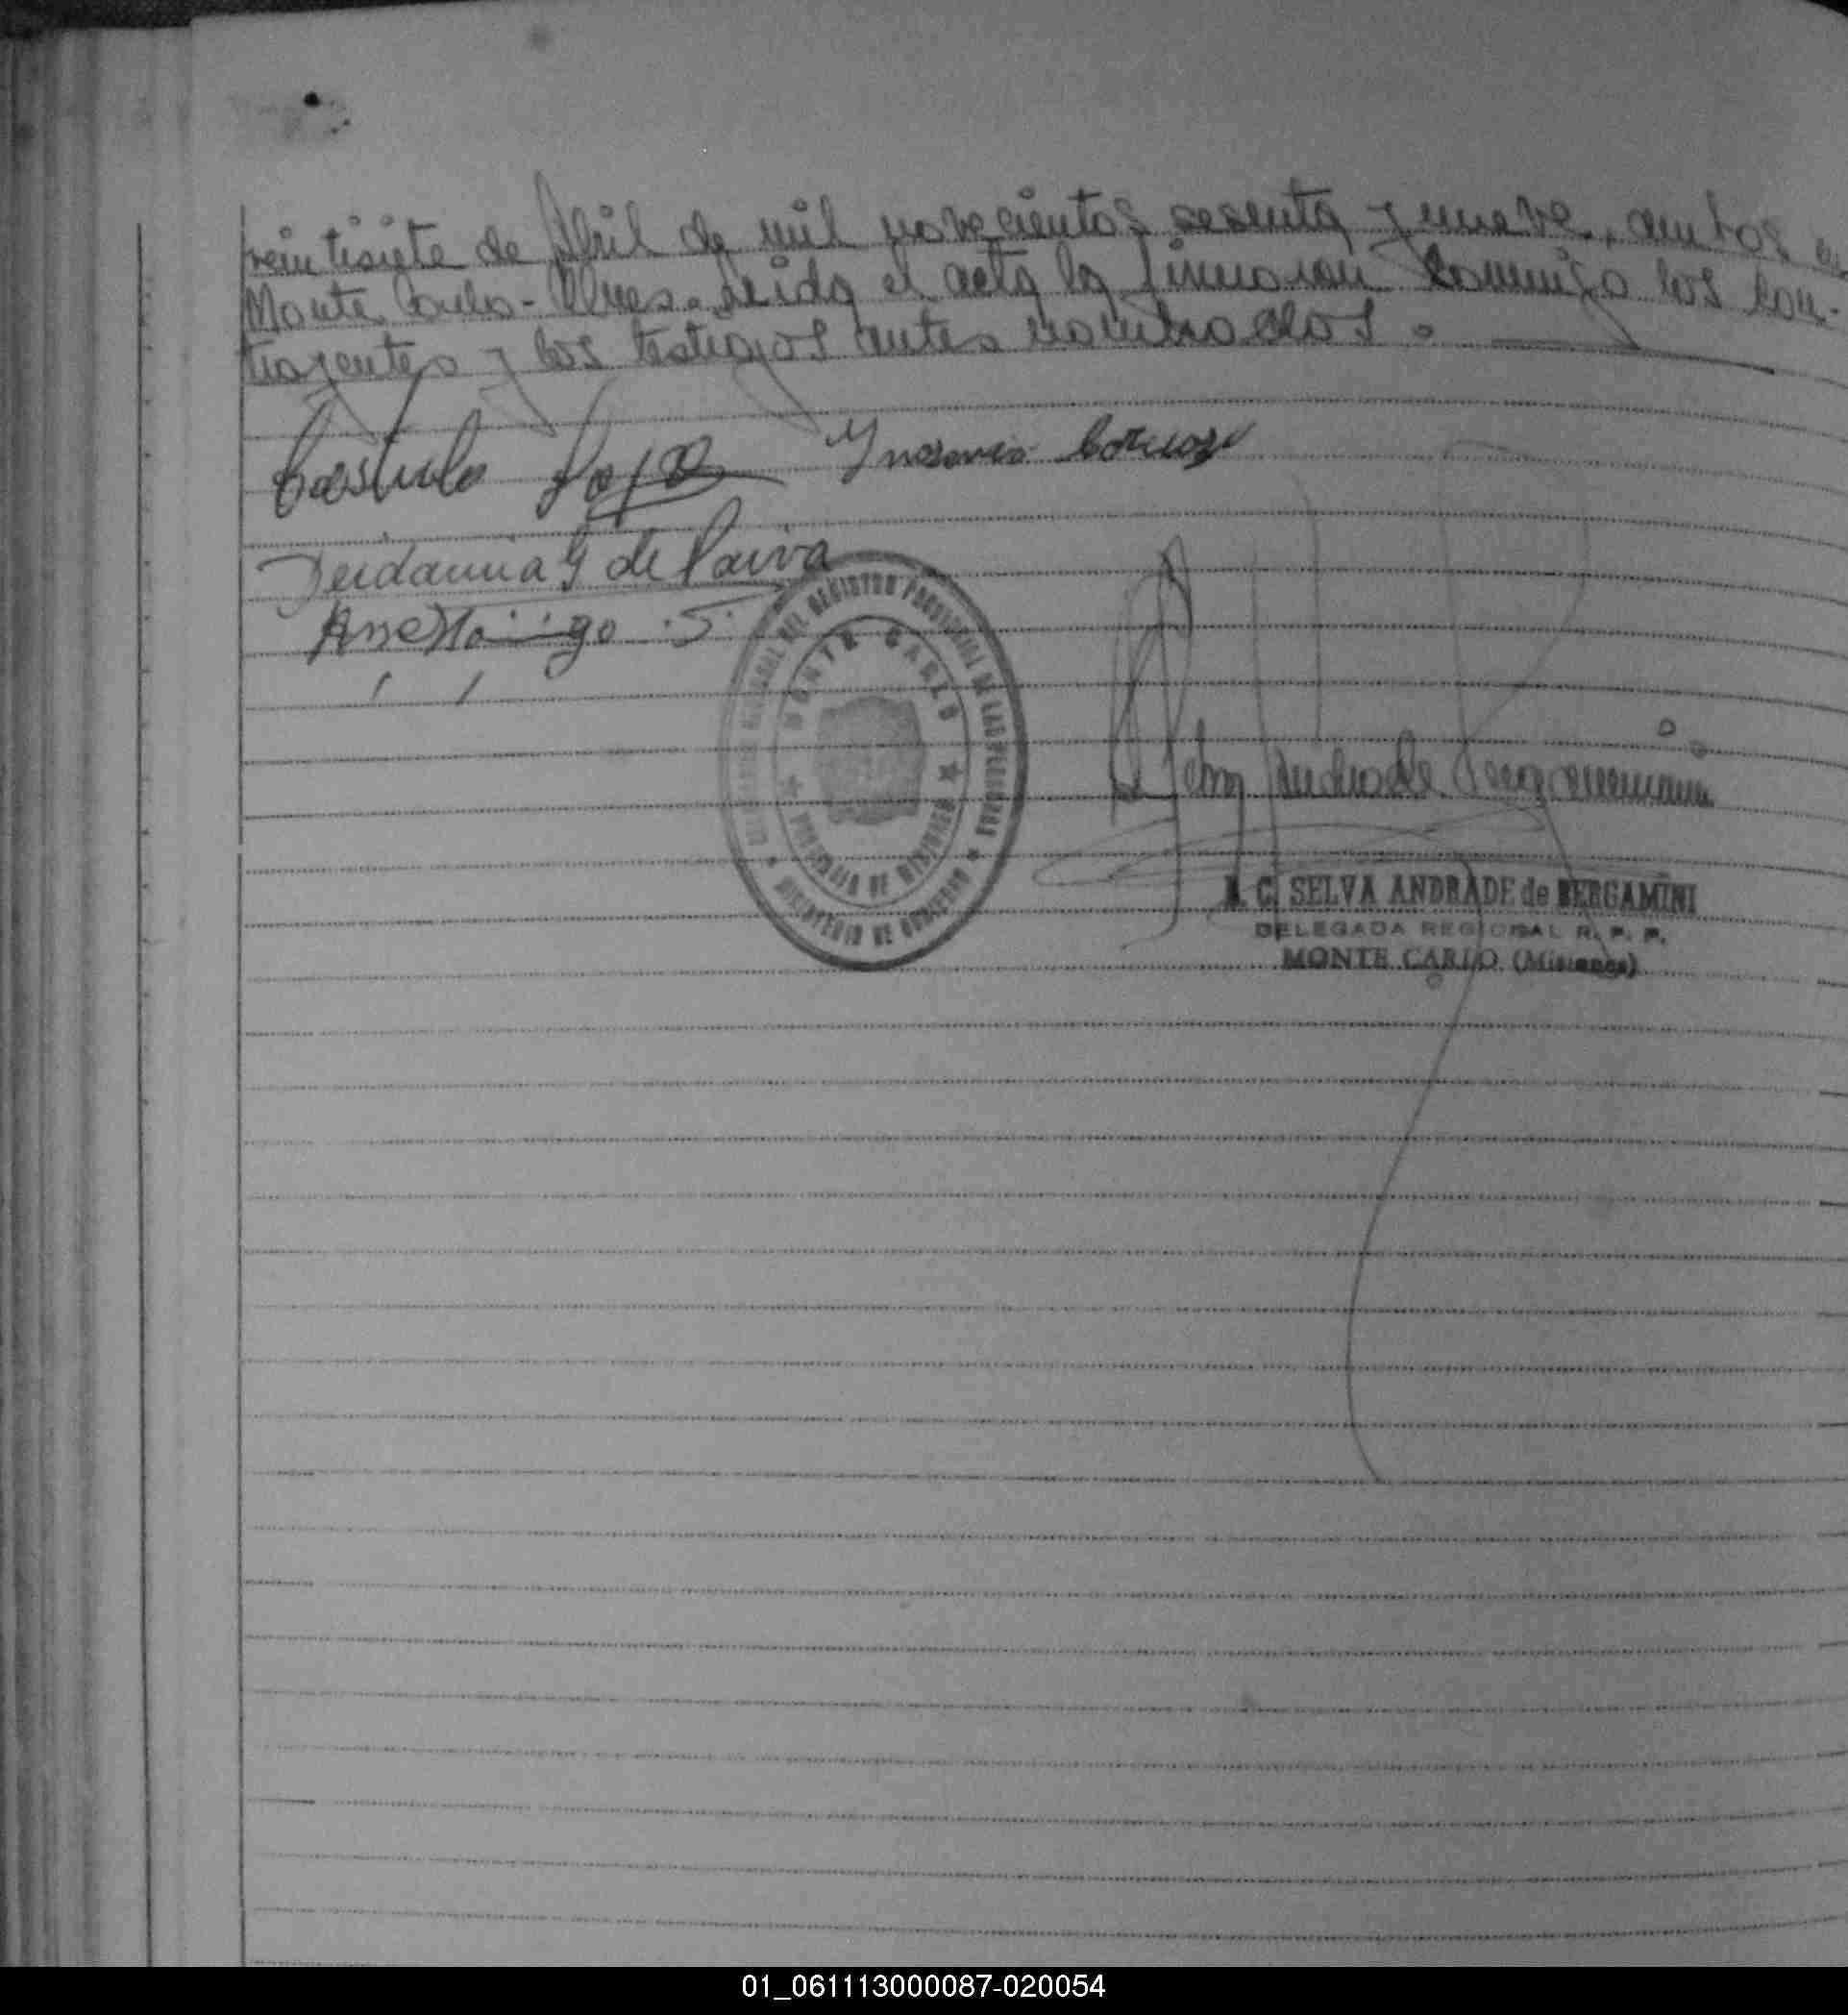 veintisiete de Abril de mil novecientos sesenta y nueve, ambos en
Monte Carlo - Mnes. Leida el acta la firmaron conmigo los con-
trayentes y los testigos antes nombrados.
Castulo
G de Paiva
DEL REGISTRO PROVINCIAL DE LAS PERSONAS
MONTE CARLO
PROVINCIA DE MISIONES
MINISTERIO DE GOBIERNO
Selva Andrade Bergamini
C. SELVA ANDRADE de BERGAMINI
DELEGADA REGIONAL R. P. P.
MONTE CARLO (Misiones)
01_061113000087-020054